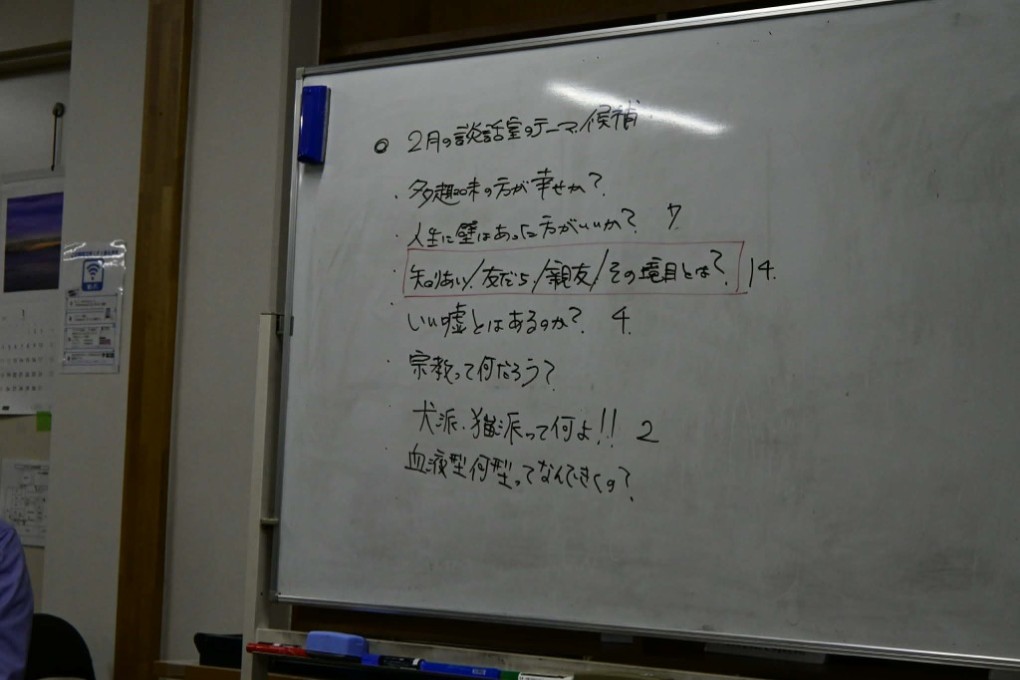 ○ 2月の談話室のテーマ候補
・多趣味の方が幸せか?
・人生に壁はあった方がいいか? 7
・知りあい/友だち/親友/その境目とは? 14
・いい嘘とはあるのか? 4
・宗教って何だろう?
犬派・猫派って何よ!! 2
・血液型何型ってなんできくの?